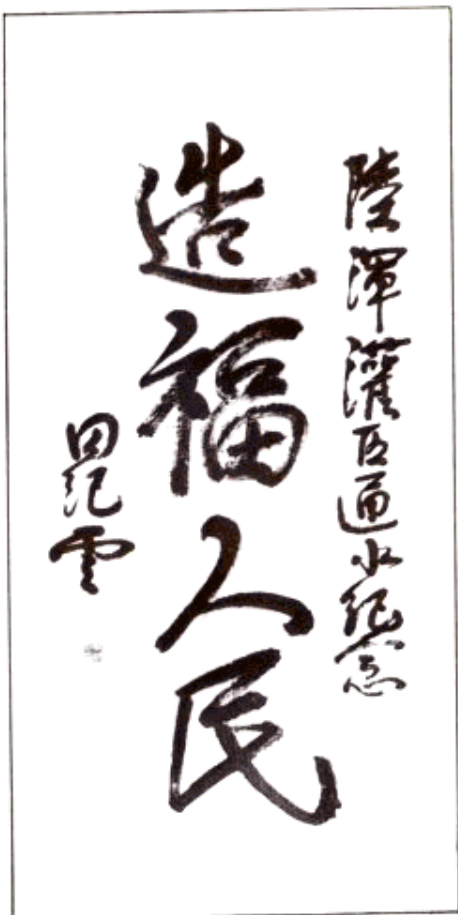 陸渾灌区通水紀念
造福人民
田紀雲